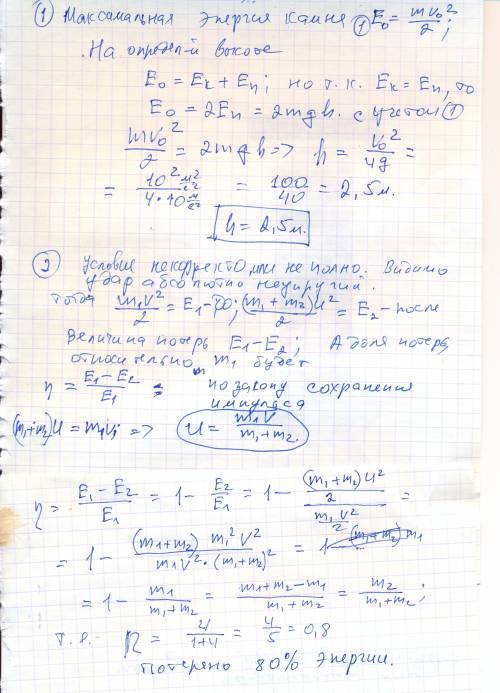 ① Максимальная энергия камня ① E₀ = mv₀²/2;
На определ-й высоте
E₀ = Eк + Eп; но т.к. Eк = Eп, то
E₀ = 2Eп = 2mgh. с учетом ①
mv₀²/2 = 2mgh => h = v₀²/4g =
= 10² м²/с² / 4*10 м/с² = 100/40 = 2,5 м.
h = 2,5 м.
② Условие некорректо, или не полно. Видимо
удар абсолютно неупругий.
тогда m₁V²/2 = E₁ - до; (m₁ + m₂)U²/2 = E₂ - после
Величина потерь E₁ - E₂; А доля потерь,
относительно m₁ будет
η = E₁ - E₂/E₁ ; по закону сохранения
импульса
(m₁+m₂)U = m₁V; => U = m₁V/m₁+m₂.
η = E₁ - E₂/E₁ = 1 - E₂/E₁ = 1 - (m₁+m₂)U²/2 / m₁V²/2 =
= 1 - (m₁+m₂) m₁² V²/m₁V² • (m₁+m₂)² =
= 1 - m₁/m₁+m₂ = m₁+m₂-m₁/m₁+m₂ = m₂/m₁+m₂;
т.е. η = 4/1+4 = 4/5 = 0,8
Потеряно 80% энергии.